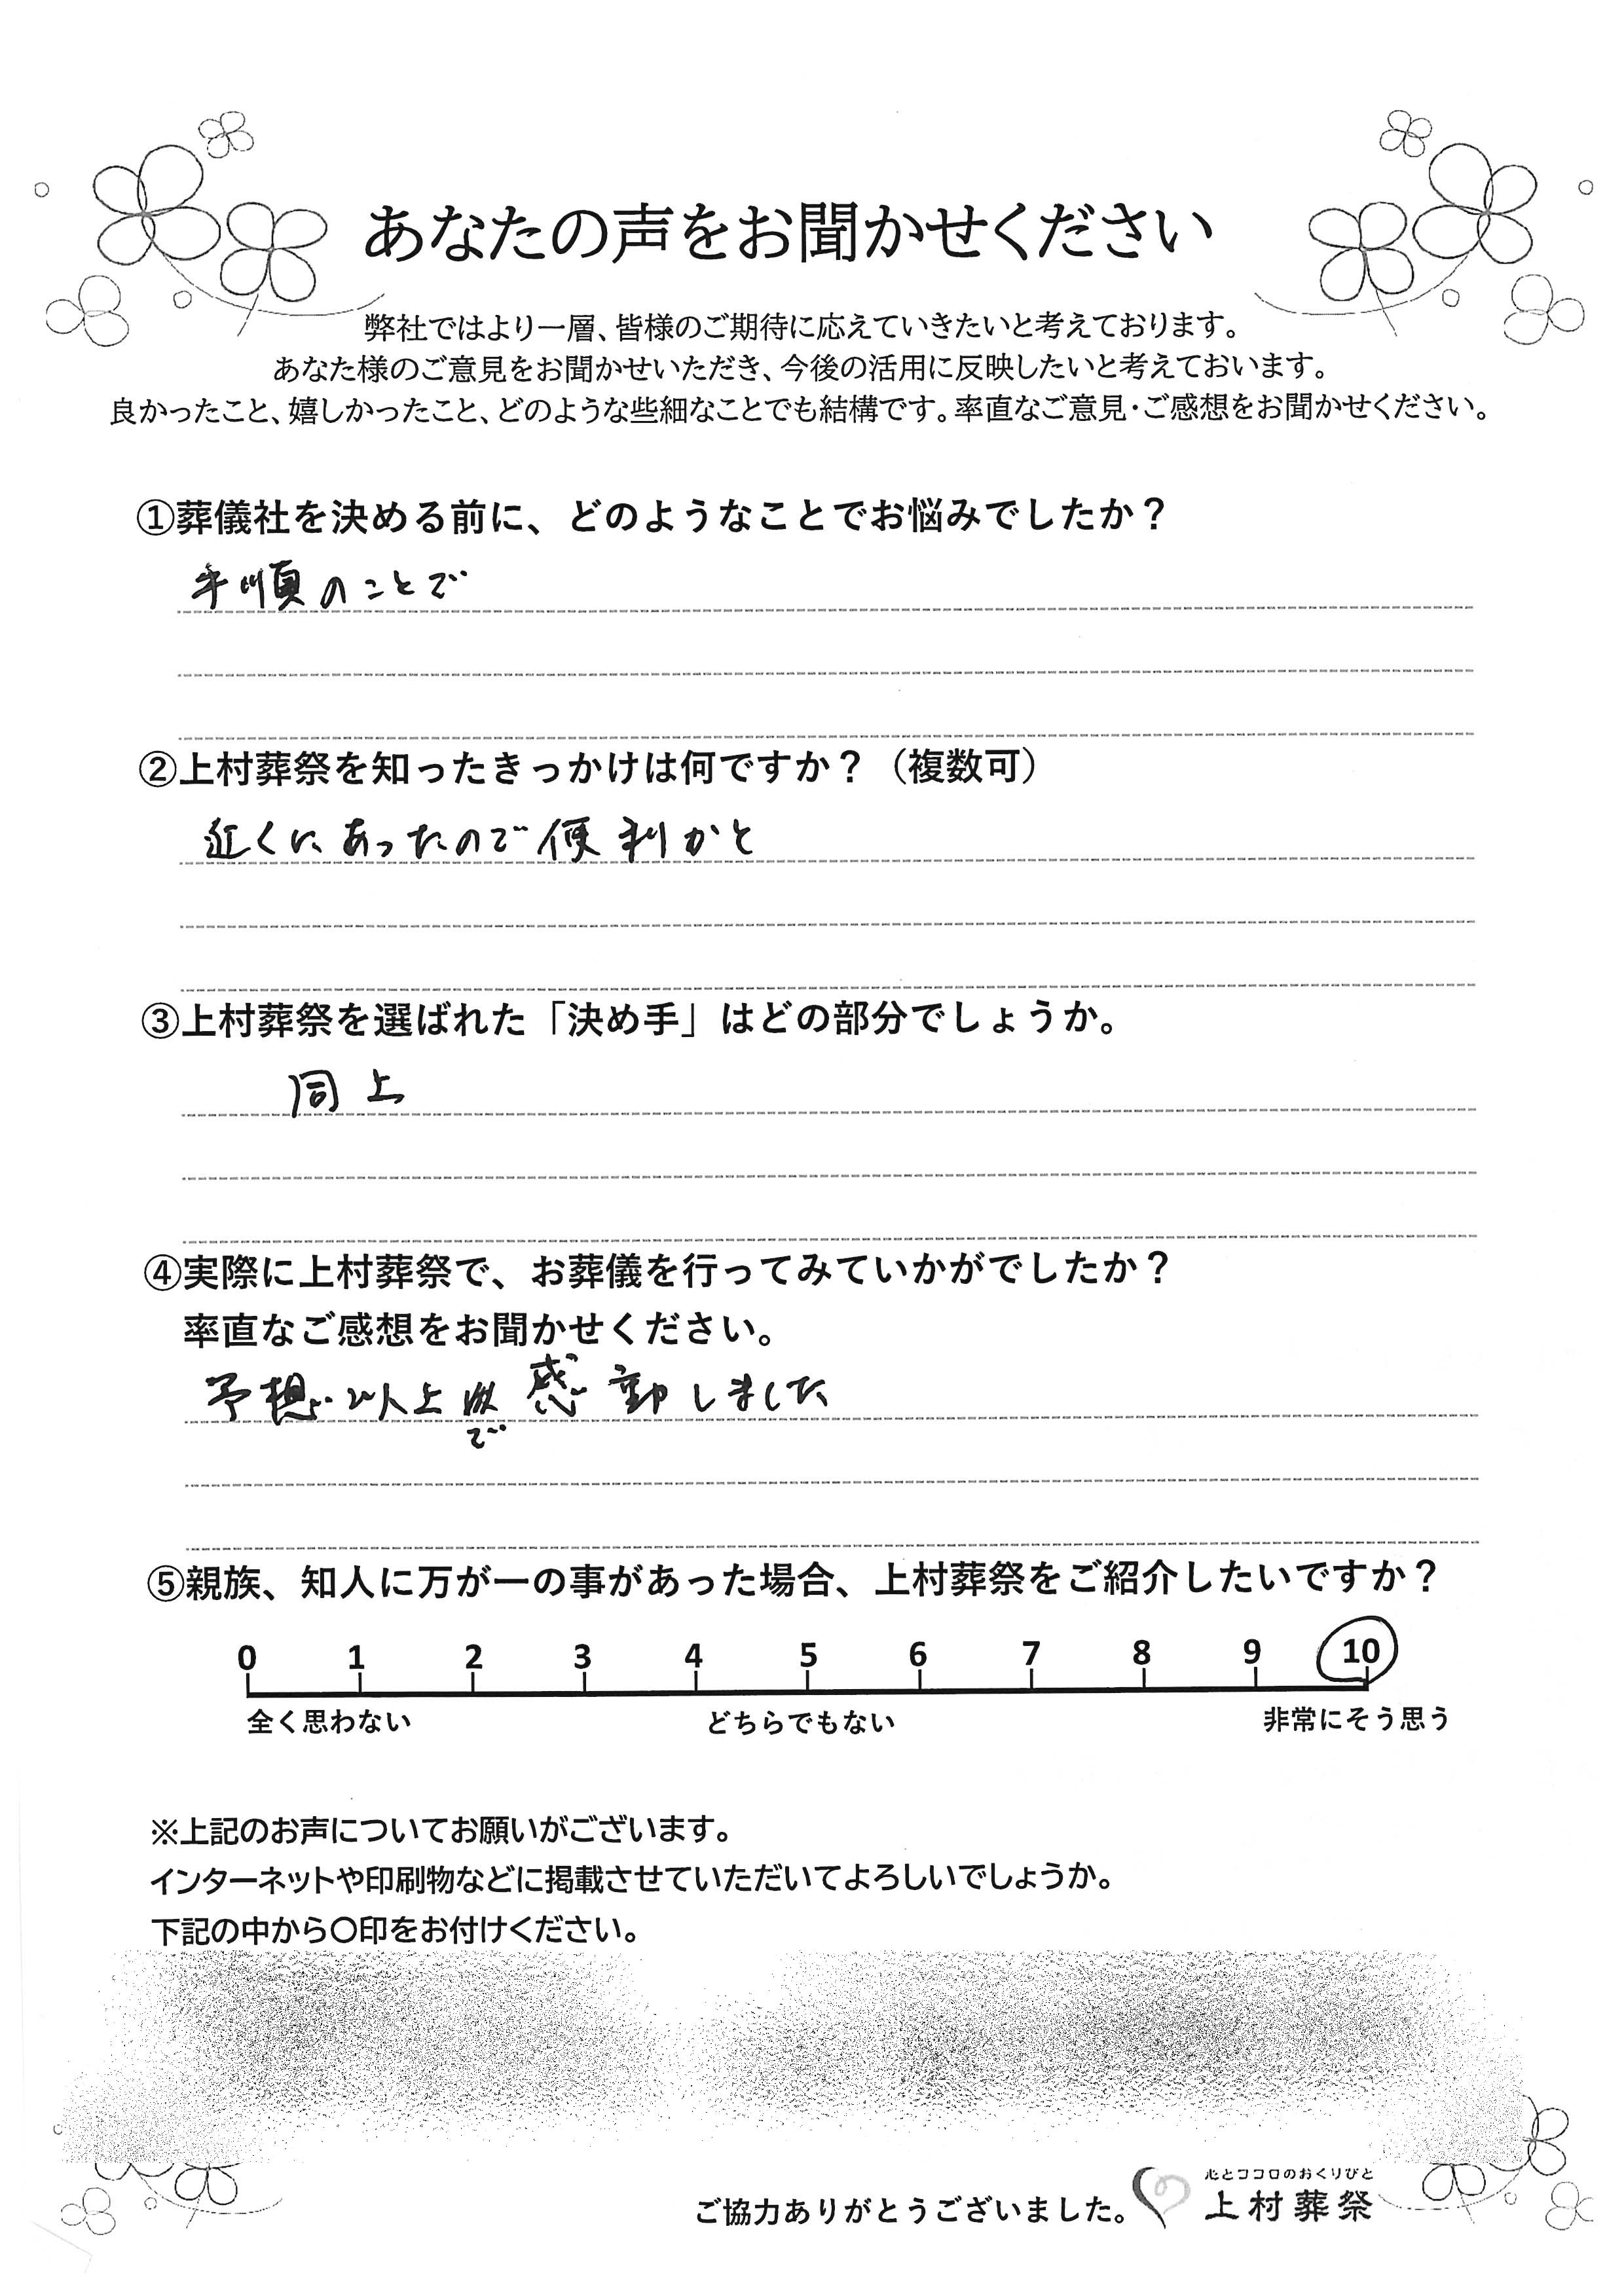 あなたの声をお聞かせください
弊社ではより一層、皆様のご期待に応えていきたいと考えております。
あなた様のご意見をお聞かせいただき、今後の活用に反映したいと考えておいます。
良かったこと、嬉しかったこと、どのような些細なことでも結構です。率直なご意見・ご感想をお聞かせください。
①葬儀社を決める前に、どのようなことでお悩みでしたか？
手順のことで
②上村葬祭を知ったきっかけは何ですか？（複数可）
近くにあったので便利かと
③上村葬祭を選ばれた「決め手」はどの部分でしょうか。
同上
④実際に上村葬祭で、お葬儀を行ってみていかがでしたか？
率直なご感想をお聞かせください。
予想以上で感動しました
⑤親族、知人に万が一の事があった場合、上村葬祭をご紹介したいですか？
0 1 2 3 4 5 6 7 8 9 10
全く思わない どちらでもない 非常にそう思う
※上記のお声についてお願いがございます。
インターネットや印刷物などに掲載させていただいてよろしいでしょうか。
下記の中から〇印をお付けください。
心とココロのおくりびと
ご協力ありがとうございました。 上村葬祭